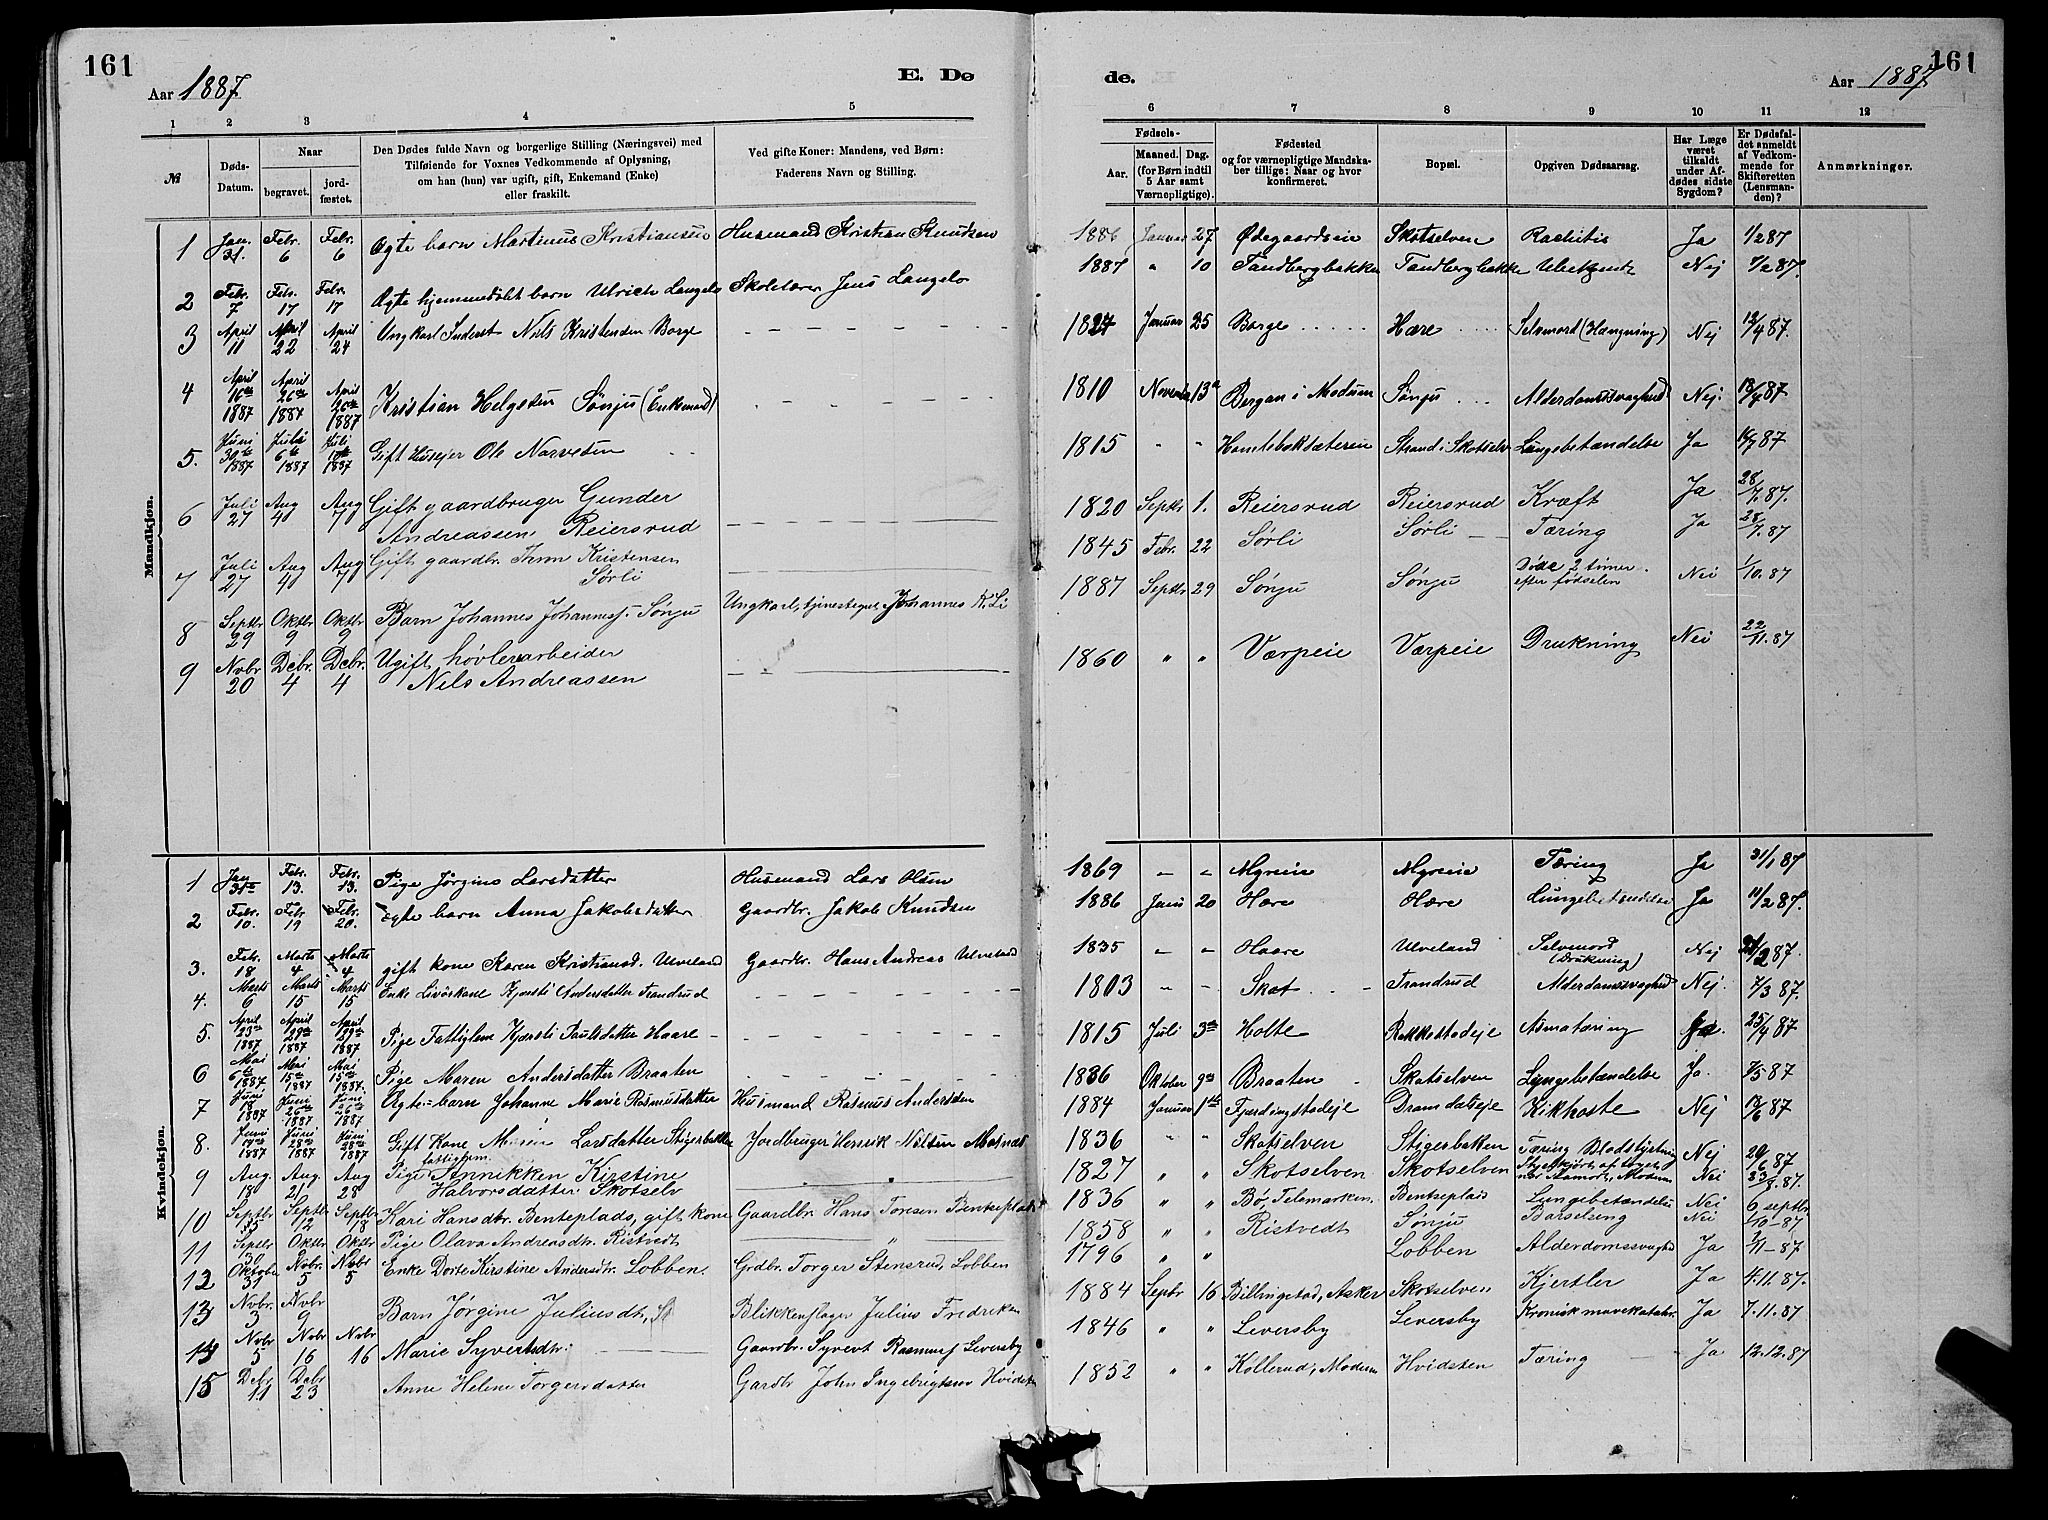 161
Aar 1887
E. Dø
de.
161
Aar 1887
1 2 3 4 5 6 7 8 9 10 11 12
№
Døds-
Datum.
Naar
begravet.
jord-
fæstet.
Den Dødes fulde Navn og borgerlige Stilling (Næringsvei) med
Tilføiende for Voxnes Vedkommende af Oplysning,
om han (hun) var ugift, gift, Enkemand (Enke)
eller fraskilt.
Ved gifte Koner: Mandens, ved Børn:
Faderens Navn og Stilling.
Fødsels-
Aar.
Maaned. Dag.
(for Børn indtil
5 Aar samt
Værnepligtige).
Fødested
og for værnepligtige Mandska-
ber tillige: Naar og hvor
konfirmeret.
Bopæl.
Opgiven Dødsaarsag.
Har Læge
været
tilkaldt
under Af-
dødes sidste
Sygdom?
Er Dødsfal-
det anmeldt
af Vedkom-
mende for
Skifteretten
(Lensman-
den)?
Anmærkninger.
Mandkjøn.
1 Jan. 31. Febr. 6 Febr. 6 Ægte barn Martinus Kristiansen Husmand Kristian Knudsen 1886 Januar 27 Ødegaardseie Skotselven Rachitis Ja 1/2 87
2 Febr. 7 Febr. 17 Febr. 17 Ægte hjemmedøbt barn Ulrich Langelo Skolelærer Jens Langelo 1887 " 10 Tandbergbakken Tandbergbakke Ubekjendt Nej 7/2 87.
3 April 11 April 22 April 24 Ungkarl Inderst Nils Kristensen Borge 1827 Januar 25 Borge Hære Selvmord (Hængning) Nej 12/4 87.
4 April 16de 1887 April 26de 1887 April 26de 1887 Kristian Helgesen Sønju (Enkemand) 1810 November 13de Bergan i Modum Sønju Alderdomssvaghed Nej. 18/4 87
5. Juni 30te 1887 Juli 6te 1887 Juli 1887 Gift Husejer Ole Narvesen 1815 " " Strand i Skotselv Lungebetændelse Ja 87
6 Juli 27 Aug 4 Aug 7 Gift gaardbruger Gunder
Andreassen Reiersrud 1820 Septbr 1. Reiersrud Reiersrud Kræft Ja 28/7. 87.
7 Juli 27 Aug 4 Aug 7 Gift gaardbr. Thron Kristensen
Sørli 1845 Febr. 22 Sørli Sørli Tæring Ja 28/7. 87
8 Septbr 29 Oktbr 9 Oktbr 9 Barn Johannes Johannesj. Sønju Ungkarl, tjenestegut, Johannes K. Li 1887 Septbr 29 Sønju Sønju Døde 2 timer
efter fødselen Nei 1/10. 87
9 Nvbr 20 Dcbr. 4 Dcbr. 4 Ugift høvleriarbeider
Nils Andreassen 1860 " " Værpeie Værpeie Drukning Nei 22/11. 87
Kvindekjøn.
1 Jan 31te Febr. 13. Febr. 13. Pige Jørgine Larsdatter Husmand Lars Olsen 1869 Myreie Myreie Tæring Ja 31/1 87
2 Febr. 10. Febr 19 Febr. 20. ægte barn Anna Jakobsdatter Gaardbr. Jakob Knudsen 1886 Janu 20 Hære Hære Lungebetændelse Ja 11/2 87.
3. Febr. 18 Marts 4 Marts 4 gift kone Karen Kristiansd. Ulveland Gaardbr. Hans Andreas Ulveland 1835 Haare Ulveland Selvmord
(Drukning) Nej 2 87.
4. Marts 6 Marts 15 Marts 15 Enke Livørskone Kjersti Andersdatter Trandrud 1803 Skot Trandrud Alderdomssvaghed Nej. 7/3 87.
5. April 23de 1887 April 29de 1887 April 29de 1887 Pige Fattiglem Kjersti Paulsdatter Haare 1815 Juli 3de Holte Rakkestadeje Asmatæring Ja. 25/4 87
6 Mai 6te 1887. Mai 15de 1887 Mai 15de 1887. Pige Maren Andersdatter Braaten 1836 Oktober 9de Braaten Skotselven Lungebetændelse Ja. 7/5 87
7 Juni 18 1887 Juni 26de 1887 Juni 26de 1887 Ægte barn Johanne Marie Rasmusdatter Husmand Rasmus Andersen 1884 Januar 1te Fjerdingstadeje Dramdalseje Kikhoste Nej 18/6 87
8. Juni 19de 1887 Juni 28de 1887 Juni 28de 1887 Gift Kone Maren Larsdatter Stigerbakken Jordbruger Henrik Nilsen Mosnæs 1836 " " Skotselven Stigerbaken Tæring Blodstyrtning Nej 20/6 87
9 Aug. 18 Aug. 21 Aug 28 fattiglem.
Pige Annikken Kirstine
Halvorsdatter Skotselv 1827 " " Skotselven Skotselven ihjelkjørt af toget
nær Aamodt, Modum Nei 23/8. 87.
10 Septbr 5 Septbr 12 Septbr 18 Kari Hansdtr. Benteplads, gift kone Gaardbr. Hans Toresen Benteplads 1836 " " Bø, Telemarken Benteplads Lungebetændelse Nei 6 septbr
11 Septbr 30 Oktbr 9 Oktbr 9 Pige Olava Andreasdtr. Ristvedt " 1858 " " Ristvedt Sønju Barselseng Nei 10-87
12 Oktober 31 Nvbr. 5 Nvbr 5 Enke Dorte Kirstine Andersdtr. Lobben. Grdbr. Torger Stensrud Lobben 1796 " " Lobben Alderdomssvaghed Ja 2/11-87
13 Nvbr. 3 Nvbr 9 Barn Jørgine Juliusdt. Blikkenslager Julius Fredriksen 1884 Sepbr 16 Billingstad, Asker Skotselven Kjertler Ja 4.11.87.
14 Nvbr 5 Nvbr 16 Nvbr 16 Marie Syvertsdtr. Gaardbr. Syvert Rasmusj Leversby 1846 " " Leversby Leversby Kronisk mavekatahr Ja 7.11.87
15 Dcbr. 11 Dcbr 23 Anne Helene Torgersdatter Gardbr John Ingebrigtsen Hvidsten 1852 " " Kollerud, Modum Hvidsten Tæring Ja 12.12.87